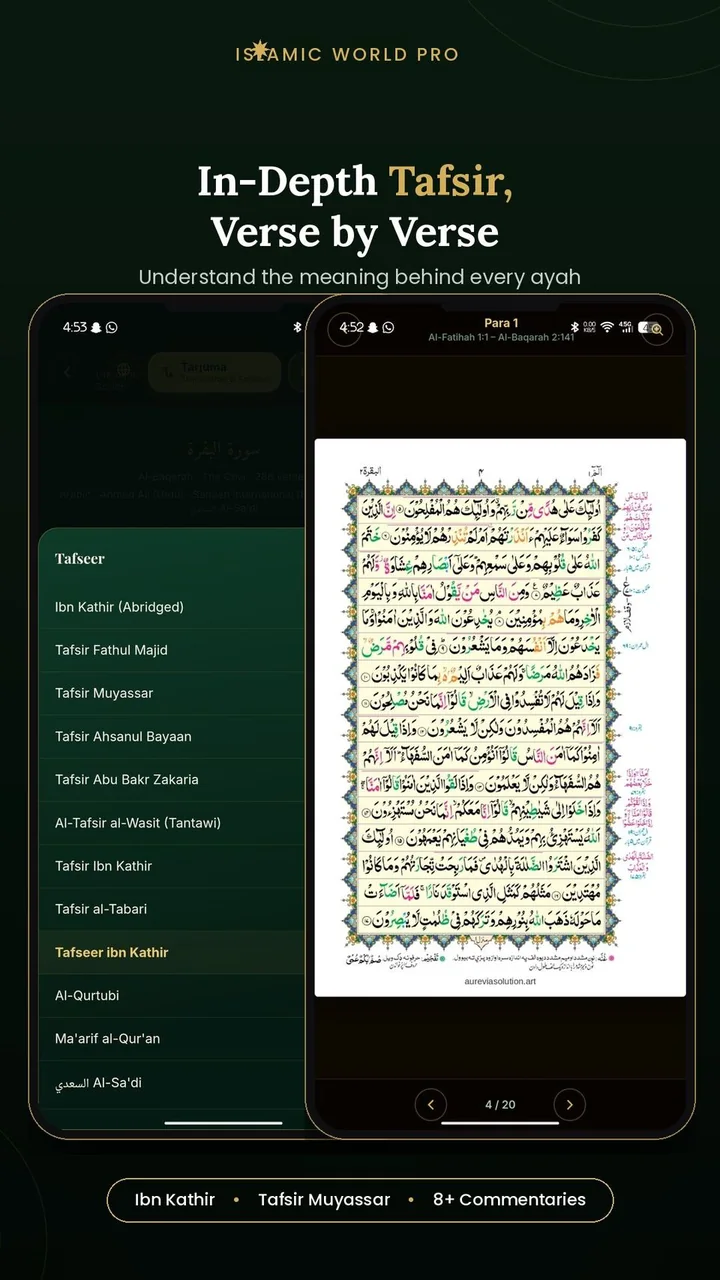 ISLAMIC WORLD PRO
In-Depth Tafsir,
Verse by Verse
Understand the meaning behind every ayah
4:53
Tarjuma
سورة البقرة
Tafseer
Ibn Kathir (Abridged)
Tafsir Fathul Majid
Tafsir Muyassar
Tafsir Ahsanul Bayaan
Tafsir Abu Bakr Zakaria
Al-Tafsir al-Wasit (Tantawi)
Tafsir Ibn Kathir
Tafsir al-Tabari
Tafseer ibn Kathir
Al-Qurtubi
Ma'arif al-Qur'an
السعدي Al-Sa'di
4:52
Para 1
Al-Fatihah 1:1 – Al-Baqarah 2:141
البقرة٢
٤
اُولٰٓئِكَ عَلٰى هُدًى مِّنْ رَّبِّهِمْ وَاُولٰٓئِكَ هُمُ الْمُفْلِحُوْنَ اِنَّ الَّذِيْنَ
كَفَرُوْا سَوَآءٌ عَلَيْهِمْ ءَاَنْذَرْتَهُمْ اَمْ لَمْ تُنْذِرْهُمْ لَا يُؤْمِنُوْنَ خَتَمَ
اللهُ عَلٰى قُلُوْبِهِمْ وَعَلٰى سَمْعِهِمْ وَعَلٰٓى اَبْصَارِهِمْ غِشَاوَةٌ وَّلَهُمْ
عَذَابٌ عَظِيْمٌ وَمِنَ النَّاسِ مَنْ يَّقُوْلُ اٰمَنَّا بِاللهِ وَبِالْيَوْمِ
الْاٰخِرِ وَمَا هُمْ بِمُؤْمِنِيْنَ يُخٰدِعُوْنَ اللهَ وَالَّذِيْنَ اٰمَنُوْا وَمَا
يَخْدَعُوْنَ اِلَّآ اَنْفُسَهُمْ وَمَا يَشْعُرُوْنَ فِيْ قُلُوْبِهِمْ مَّرَضٌ
فَزَادَهُمُ اللهُ مَرَضًا وَلَهُمْ عَذَابٌ اَلِيْمٌ بِمَا كَانُوْا يَكْذِبُوْنَ
وَاِذَا قِيْلَ لَهُمْ لَا تُفْسِدُوْا فِي الْاَرْضِ قَالُوْٓا اِنَّمَا نَحْنُ مُصْلِحُوْنَ
اَلَآ اِنَّهُمْ هُمُ الْمُفْسِدُوْنَ وَلٰكِنْ لَّا يَشْعُرُوْنَ وَاِذَا قِيْلَ لَهُمْ
اٰمِنُوْا كَمَآ اٰمَنَ النَّاسُ قَالُوْٓا اَنُؤْمِنُ كَمَآ اٰمَنَ السُّفَهَآءُ اَلَآ اِنَّهُمْ
هُمُ السُّفَهَآءُ وَلٰكِنْ لَّا يَعْلَمُوْنَ وَاِذَا لَقُوا الَّذِيْنَ اٰمَنُوْا قَالُوْٓا اٰمَنَّا
وَاِذَا خَلَوْا اِلٰى شَيٰطِيْنِهِمْ قَالُوْٓا اِنَّا مَعَكُمْ اِنَّمَا نَحْنُ مُسْتَهْزِءُوْنَ
اَللهُ يَسْتَهْزِئُ بِهِمْ وَيَمُدُّهُمْ فِيْ طُغْيَانِهِمْ يَعْمَهُوْنَ اُولٰٓئِكَ
الَّذِيْنَ اشْتَرَوُا الضَّلٰلَةَ بِالْهُدٰى فَمَا رَبِحَتْ تِّجَارَتُهُمْ وَمَا كَانُوْا
مُهْتَدِيْنَ مَثَلُهُمْ كَمَثَلِ الَّذِى اسْتَوْقَدَ نَارًا فَلَمَّآ اَضَآءَتْ
مَا حَوْلَهٗ ذَهَبَ اللهُ بِنُوْرِهِمْ وَتَرَكَهُمْ فِيْ ظُلُمٰتٍ لَّا يُبْصِرُوْنَ
صُمٌّۢ بُكْمٌ عُمْيٌ
aureviasolution.art
4 / 20
Ibn Kathir • Tafsir Muyassar • 8+ Commentaries